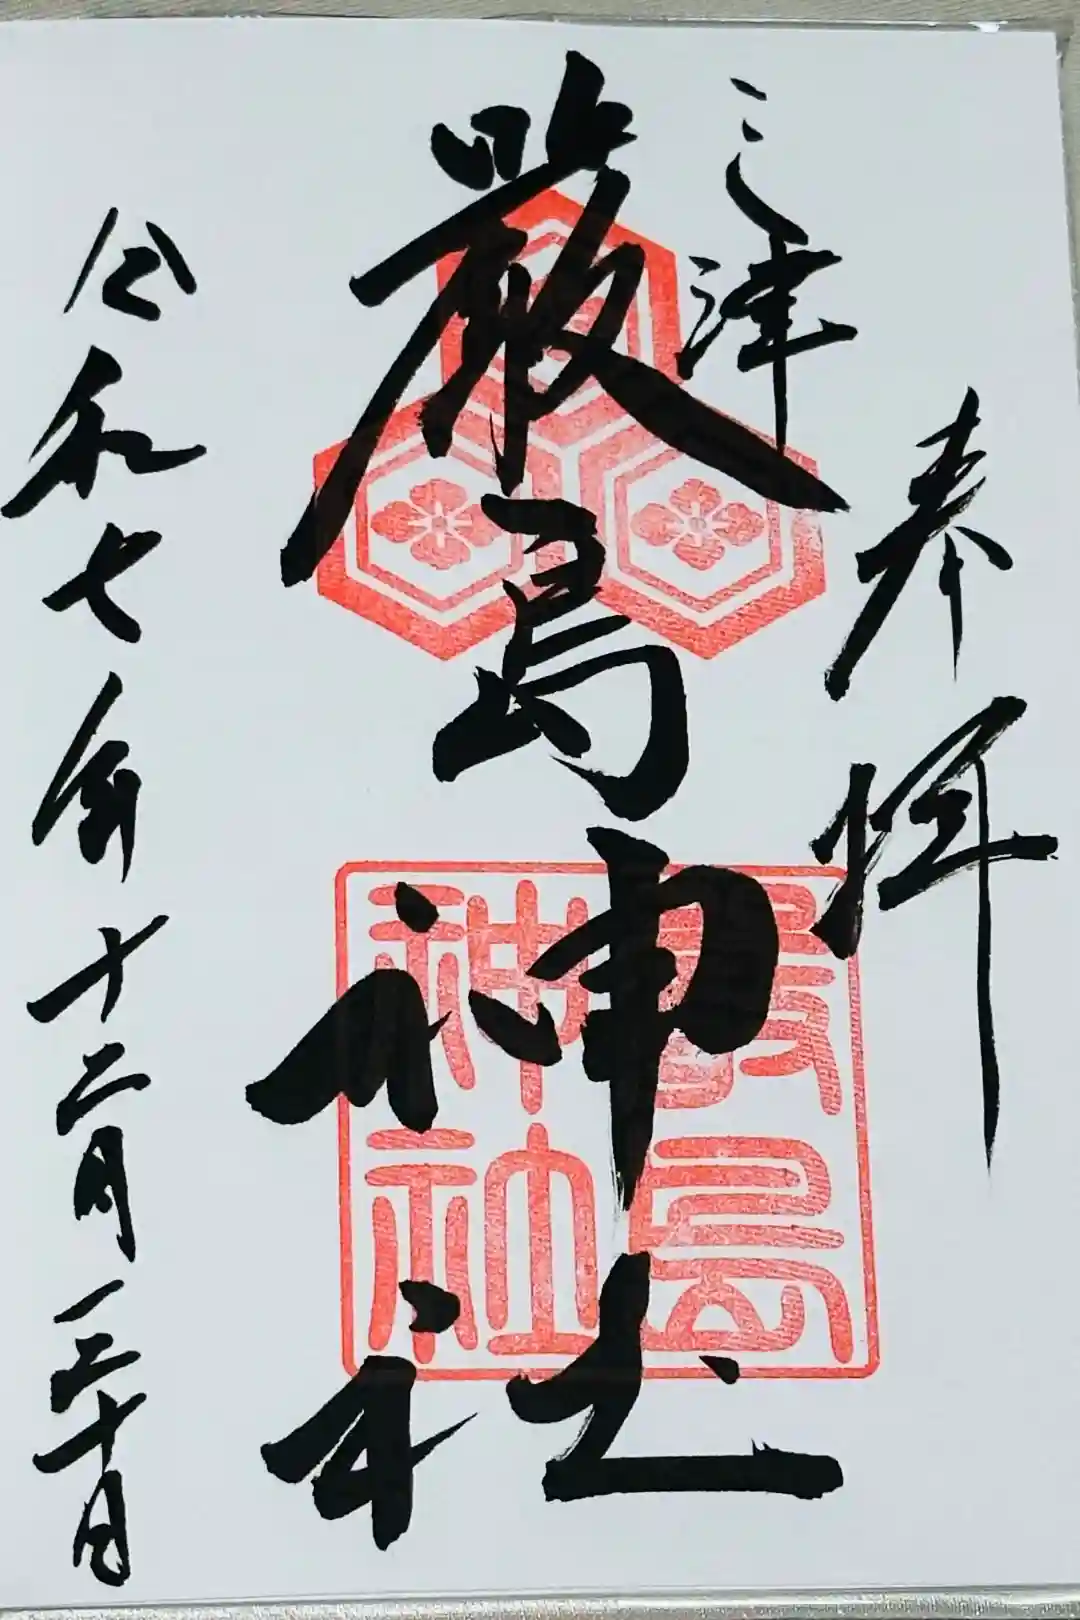 奉拝
三津
厳島神社
令和七年十二月三十日
嚴島
神社